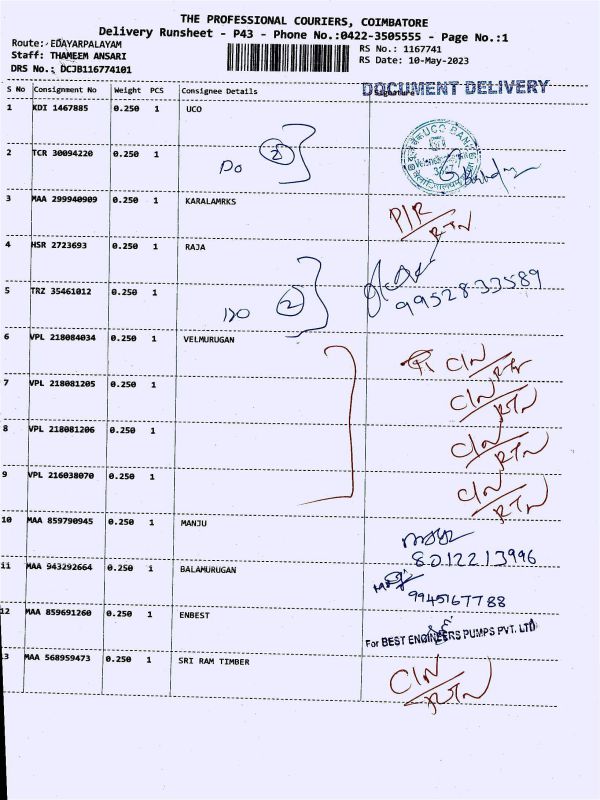 THE PROFESSIONAL COURIERS, COIMBATORE
Delivery Runsheet - P43 - Phone No.:0422-3505555 - Page No.:1
Route: EDAYARPALAYAM
Staff: THAMEEM ANSARI
DRS No.: DCJB116774101
RS No.: 1167741
RS Date: 10-May-2023
DOCUMENT DELIVERY
S No Consignment No Weight PCS Consignee Details Signature
1 KDI 1467885 0.250 1 UCO
UCO BANK
2 TCR 30094220 0.250 1
Do 2
3 MAA 299940909 0.250 1 KARALAMRKS
P/R
RTN
4 HSR 2723693 0.250 1 RAJA
9952833589
5 TRZ 35461012 0.250 1
Do 2
6 VPL 218084034 0.250 1 VELMURUGAN
C/N
RTN
7 VPL 218081205 0.250 1
C/N
RTN
8 VPL 218081206 0.250 1
C/N
RTN
9 VPL 216038070 0.250 1
C/N
RTN
10 MAA 859790945 0.250 1 MANJU
8012213996
11 MAA 943292664 0.250 1 BALAMURUGAN
9945167788
12 MAA 859691260 0.250 1 ENBEST
For BEST ENGINEERS PUMPS PVT. LTD
13 MAA 568959473 0.250 1 SRI RAM TIMBER
C/N
RTN